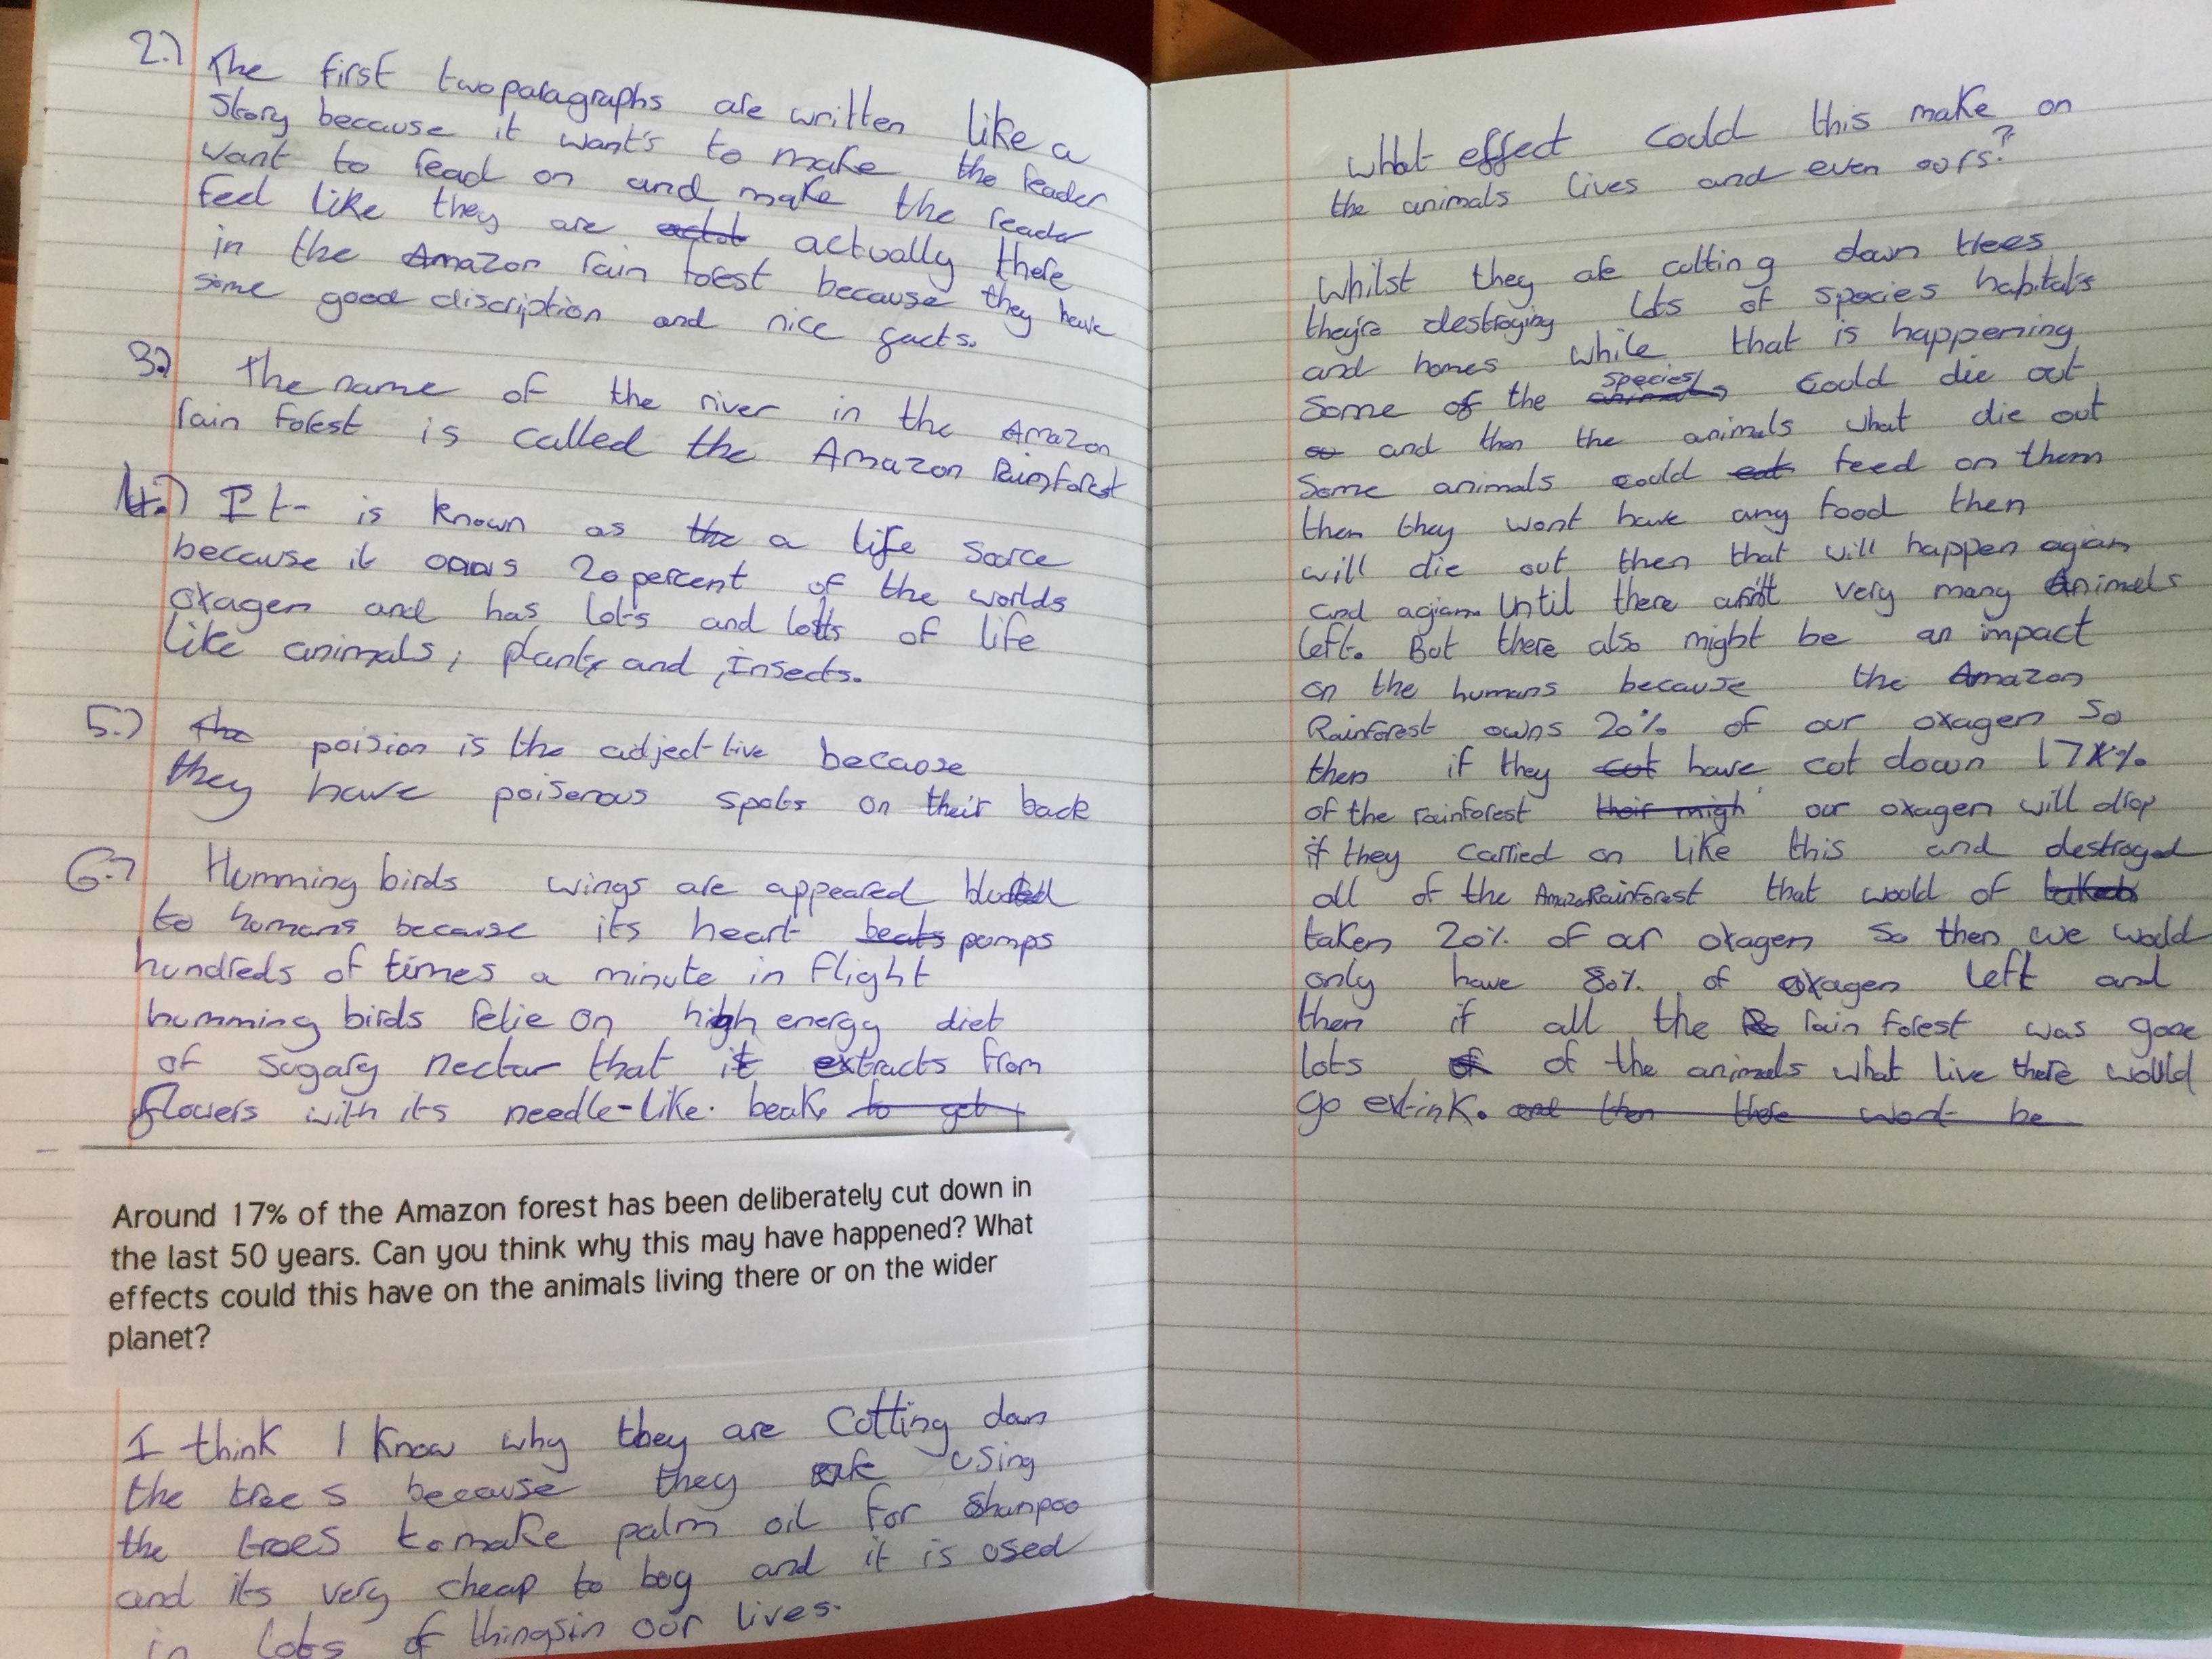 2.) The first two paragraphs are written like a
story because it want's to make the reader
want to read on and make the reader
feel like they are actually there
in the Amazon rain forest because they have
some good discription and nice facts.
3.) The name of the river in the Amazon
rain forest is called the Amazon Rainforest
4.) It is known as the a life sorce
because it owns 20 percent of the worlds
oxagen and has lots and lots of life
like animals, plants and insects.
5.) The poision is the adjective because
they have poisenous spots on their back
6.) Humming birds wings are appeared blurred
to humans because its heart beats pumps
hundreds of times a minute in flight
humming birds relie on high energy diet
of sugary nectar that it extracts from
flowers with its needle-like. beak to get
Around 17% of the Amazon forest has been deliberately cut down in
the last 50 years. Can you think why this may have happened? What
effects could this have on the animals living there or on the wider
planet?
I think I know why they are cutting down
the trees because they are using
the trees to make palm oil for shanpoo
and its very cheap to buy and it is used
in lots of things in our lives.
What effect could this make on
the animals lives and even ours?
Whilst they are cutting down trees
they're destroying lots of species habitats
and homes while that is happening
some of the animals species could die out
so and then the animals what die out
some animals could eat feed on them
then they wont have any food then
will die out then that will happen agian
and agian until there arn't very many animals
left. But there also might be an impact
on the humans because the Amazon
Rainforest owns 20% of our oxagen so
then if they cut have cut down 17%
of the rainforest their migh our oxagen will drop
if they carried on like this and destroyed
all of the AmazonRainforest that would of
taken 20% of our oxagen so then we would
only have 80% of oxagen left and
then if all the rain forest was gone
lots of of the animals what live there would
go extink. and then there wont be